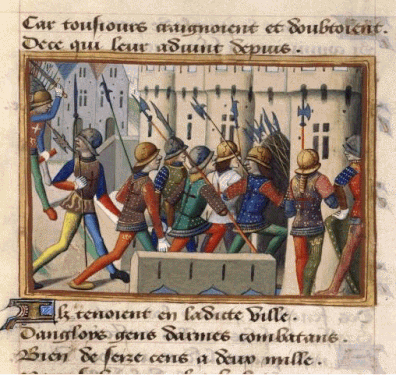 Car tousiours craignoient et doubtoient.
De ce qui leur aduint depuis.
Ilz tenoient en ladicte ville.
Dangloys gens darmes combatans.
Bien de seize cens a deux mille.